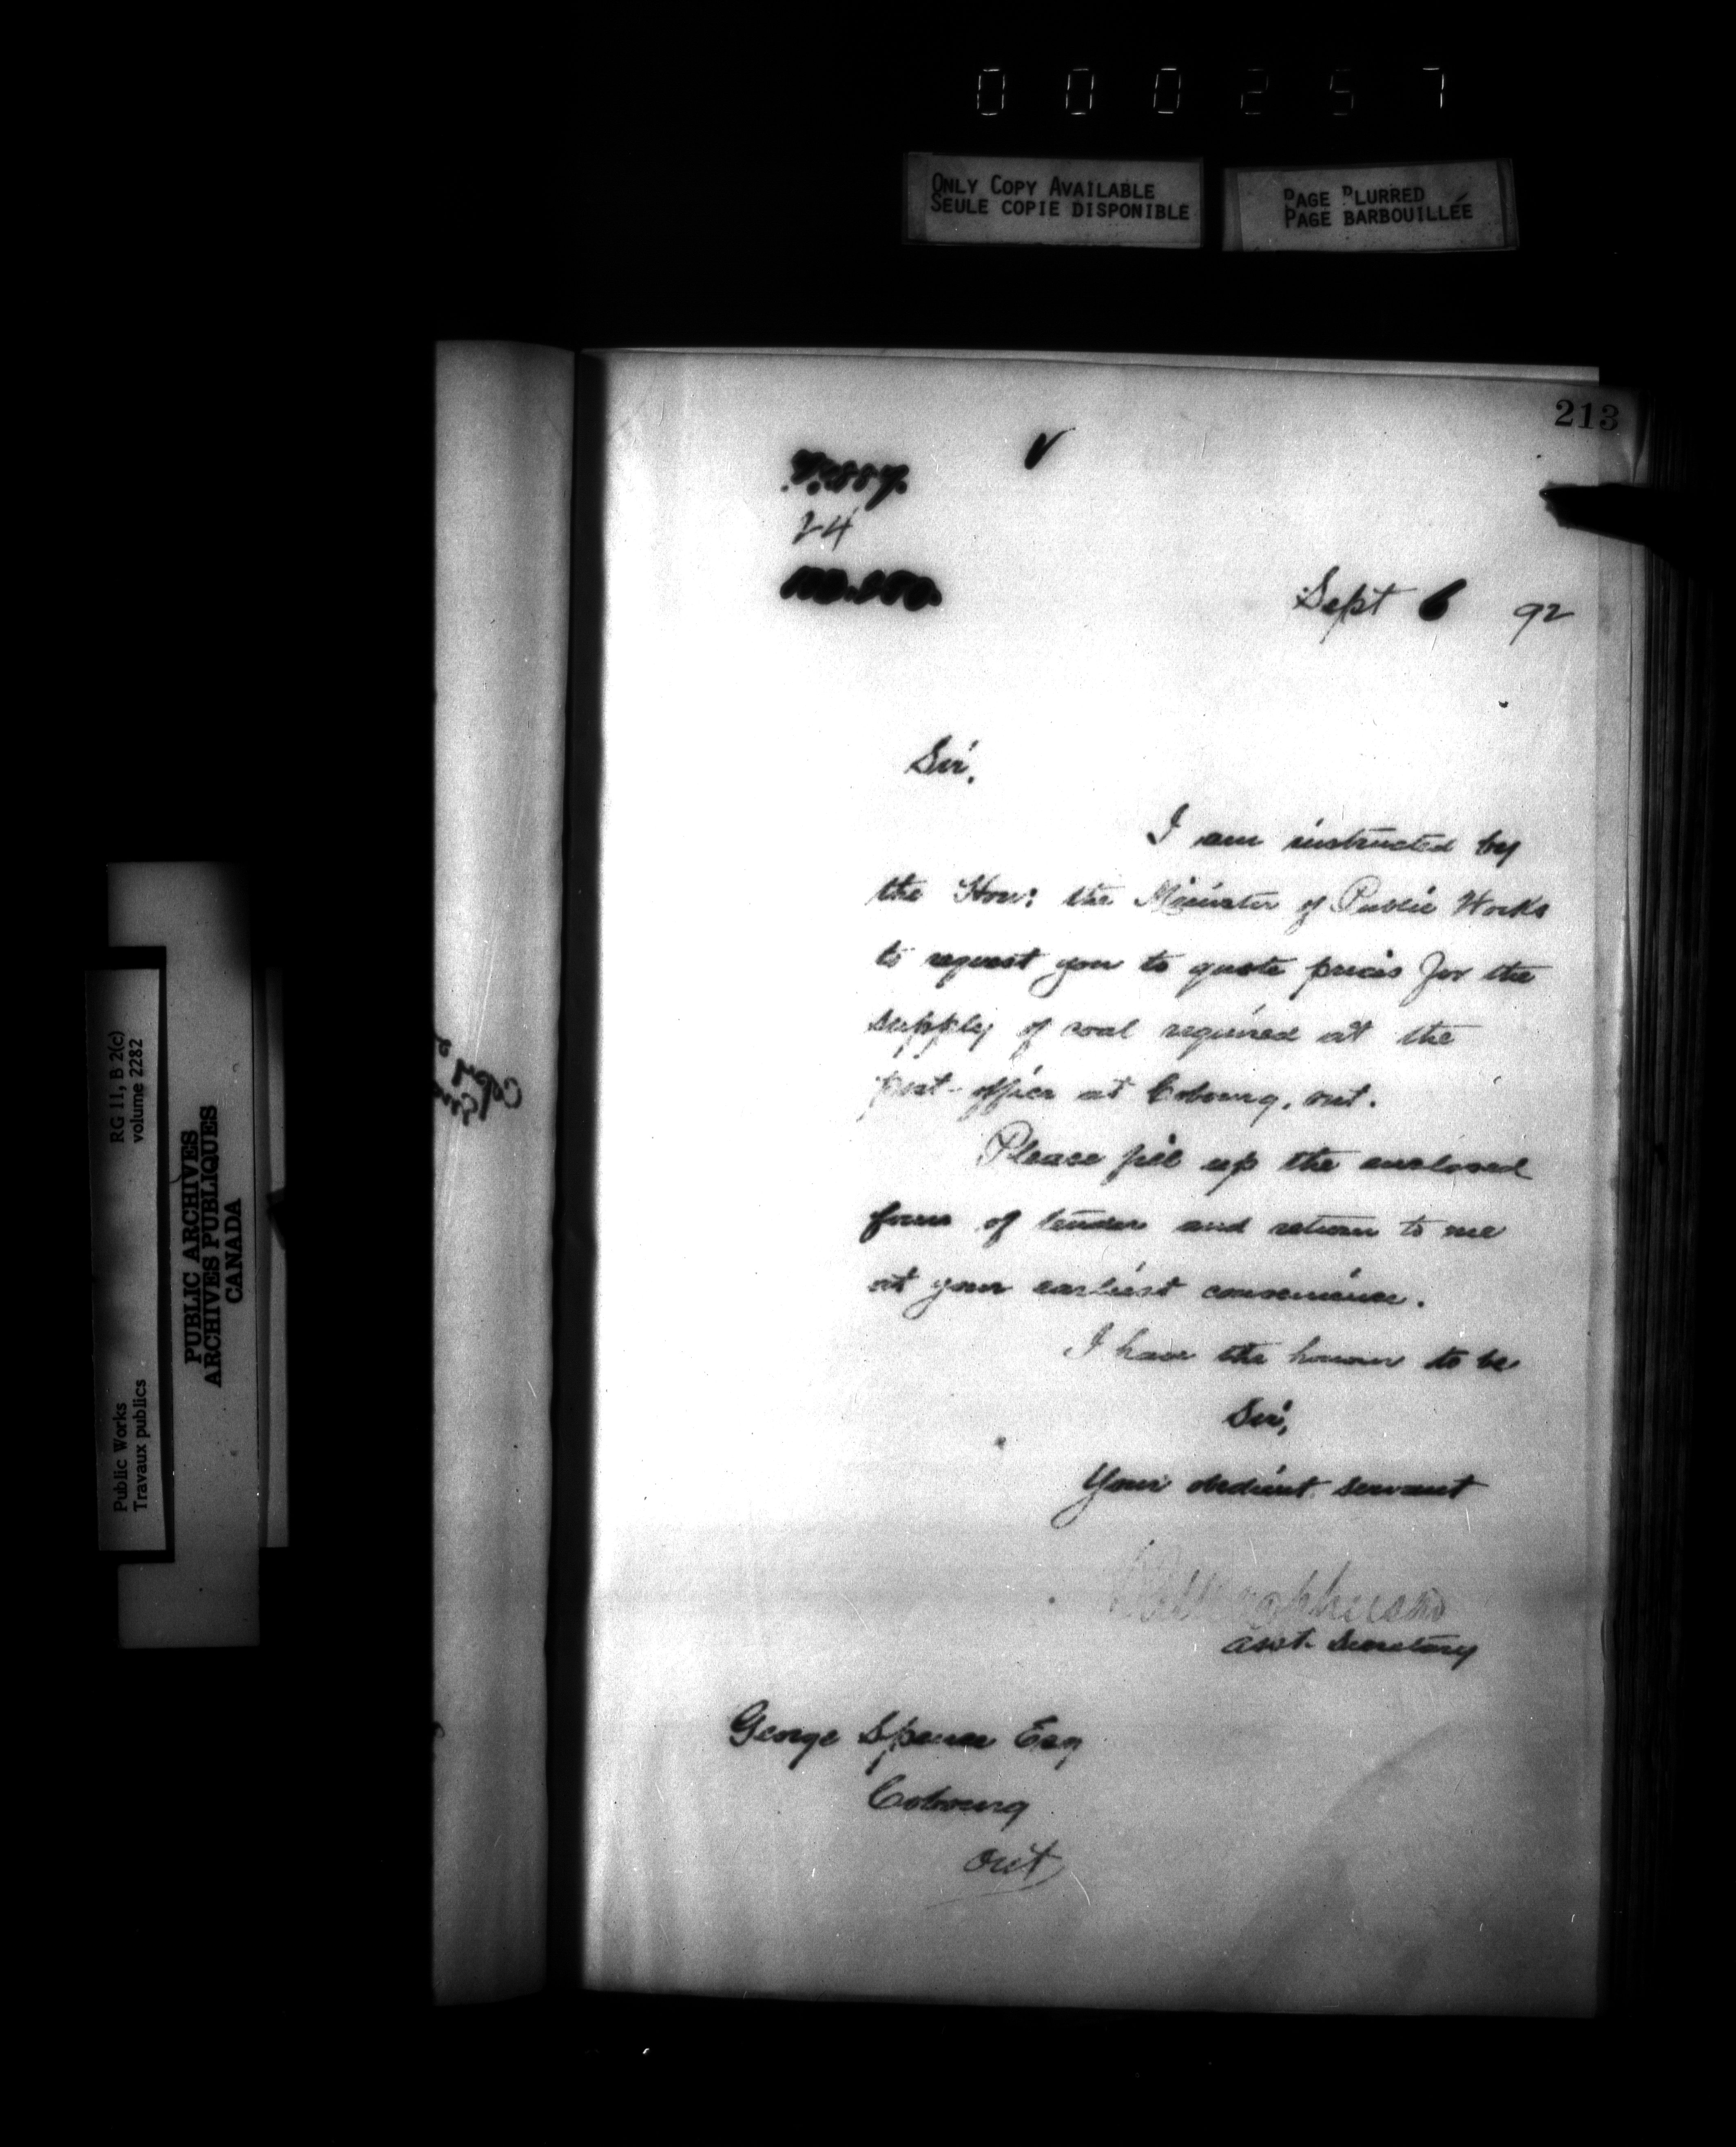 000257
ONLY COPY AVAILABLE
SEULE COPIE DISPONIBLE
PAGE BLURRED
PAGE BARBOUILLÉE
213
24
Sept 6 92
Sir,
I am instructed by
the Hon: the Minister of Public Works
to request you to quote prices for the
supply of coal required at the
post-office at Cobourg, Ont.
Please fill up the enclosed
form of tender and return to me
at your earliest convenience.
I have the honour to be
Sir,
Your obedient servant
Asst. Secretary
George Spence Esq
Cobourg
Ont
RG 11, B 2(c)
volume 2282
Public Works
Travaux publics
PUBLIC ARCHIVES
ARCHIVES PUBLIQUES
CANADA